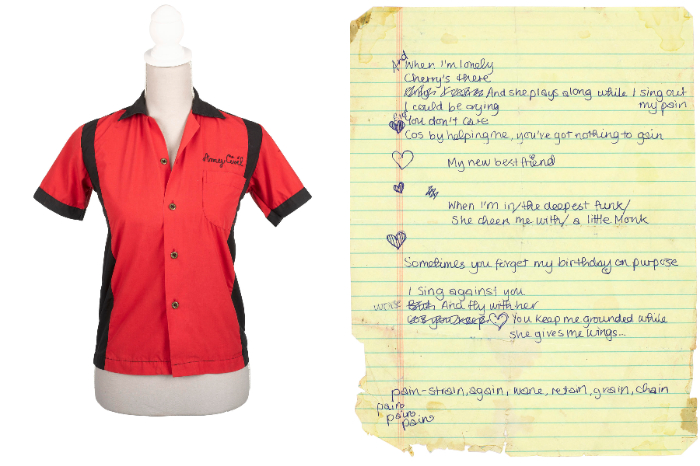 And
When I'm lonely
Cherry's there
And she plays along while I sing out my pain
I could be crying
You don't care
Cos by helping me, you've got nothing to gain
My new best friend
When I'm in/the deepest funk/
She cheers me with/a little Monk
Sometimes you forget my birthday on purpose
I sing against you
And fly with her
You keep me grounded while
she gives me wings...
pain-strain, again, wane, retain, grain, chain
pain
pain
pain